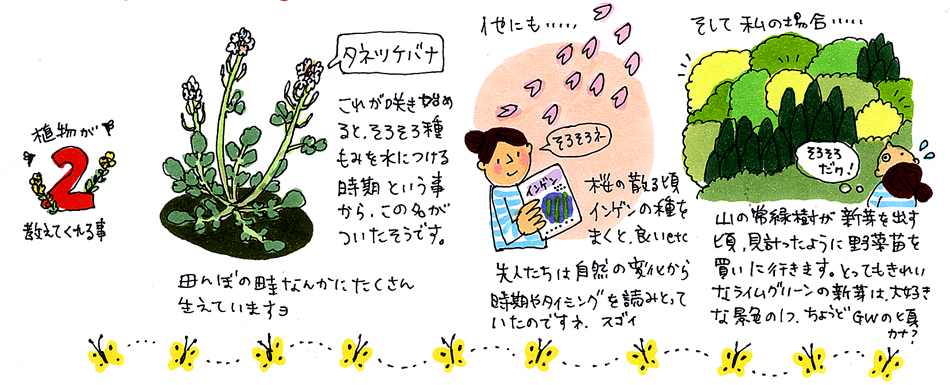 植物が
2
教えてくれる事
タネツケバナ
これが咲き始め
ると、そろそろ種
もみを水につける
時期という事
から、この名が
ついたそうです。
田んぼの畦なんかにたくさん
生えていますョ
他にも・・・・・
そろそろネ
インゲン
桜の散る頃
インゲンの種を
まくと、良いetc
先人たちは自然の変化から
時期やタイミングを読みとって
いたのですネ、スゴイ
そして私の場合・・・・・
そろそろ
だワ!
山の常緑樹が新芽を出す
頃、見計ったように野菜苗を
買いに行きます。とってもきれい
なライムグリーンの新芽は、大好き
な景色の1つ、ちょうどGWの頃
カナ?